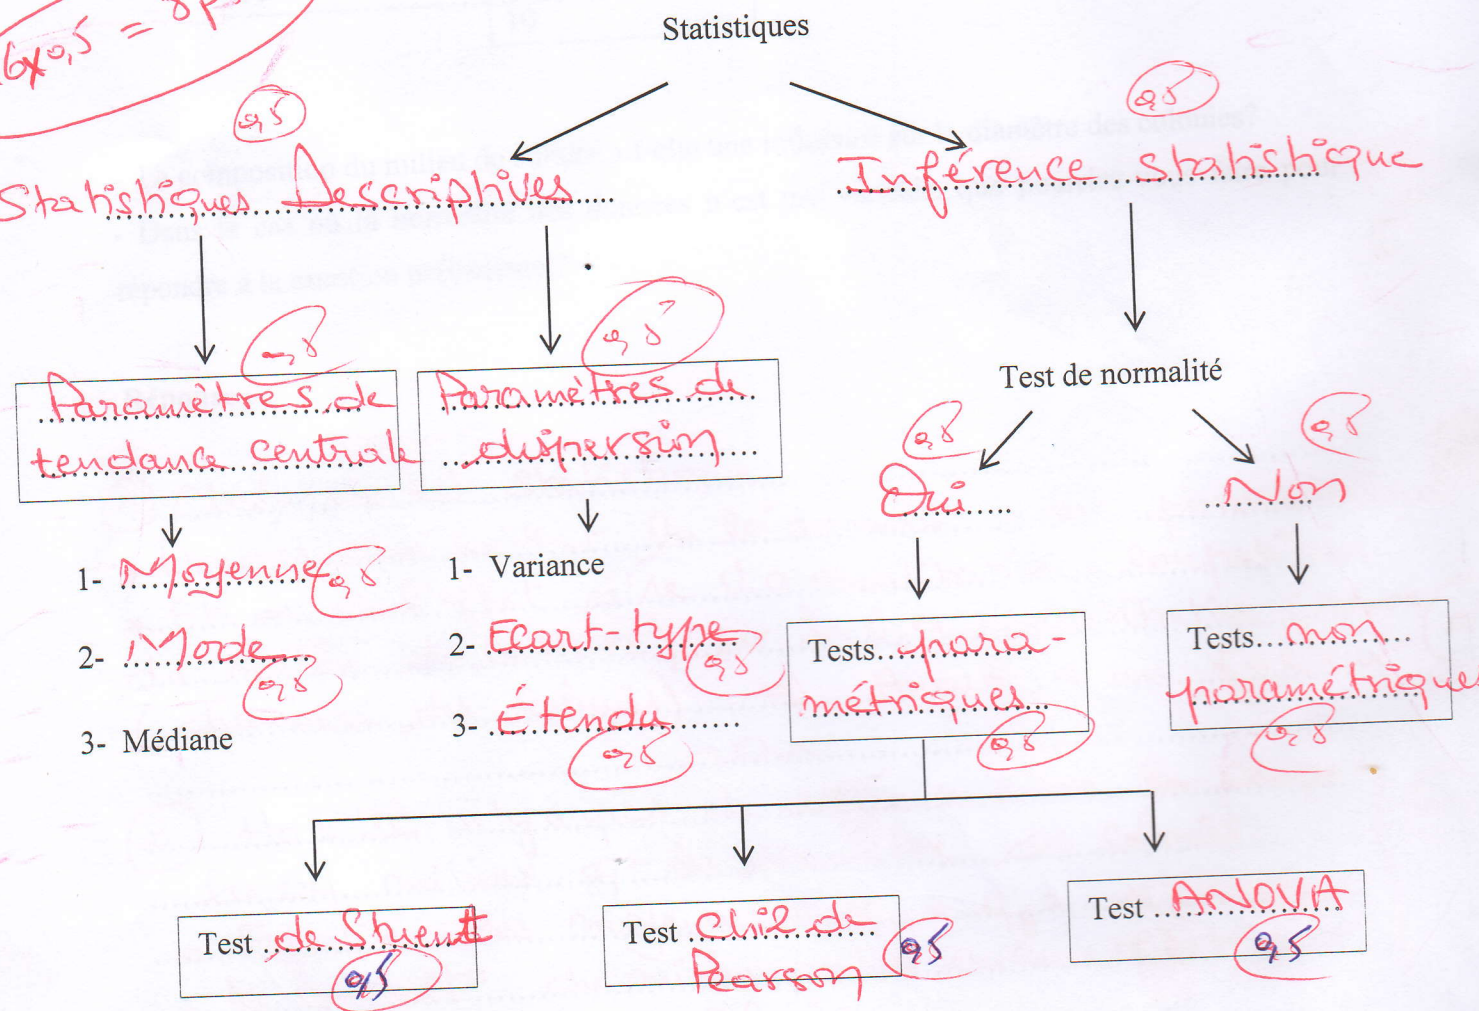 6x0,5 = 8p
Statistiques
0,5
0,5
Statistiques Descriptives
Inférence statistique
0,5
0,5
Paramètres de
tendance centrale
Paramètres de
dispersion
Test de normalité
0,5
0,5
Oui
Non
1- Moyenne 0,5
2- Mode
0,5
3- Médiane
1- Variance
2- Ecart-type
0,5
3- Étendu
0,5
Tests para-
métriques
0,5
Tests non
paramétriques
0,5
Test de Stuent
0,5
Test Chi2 de
Pearson 0,5
Test ANOVA
0,5